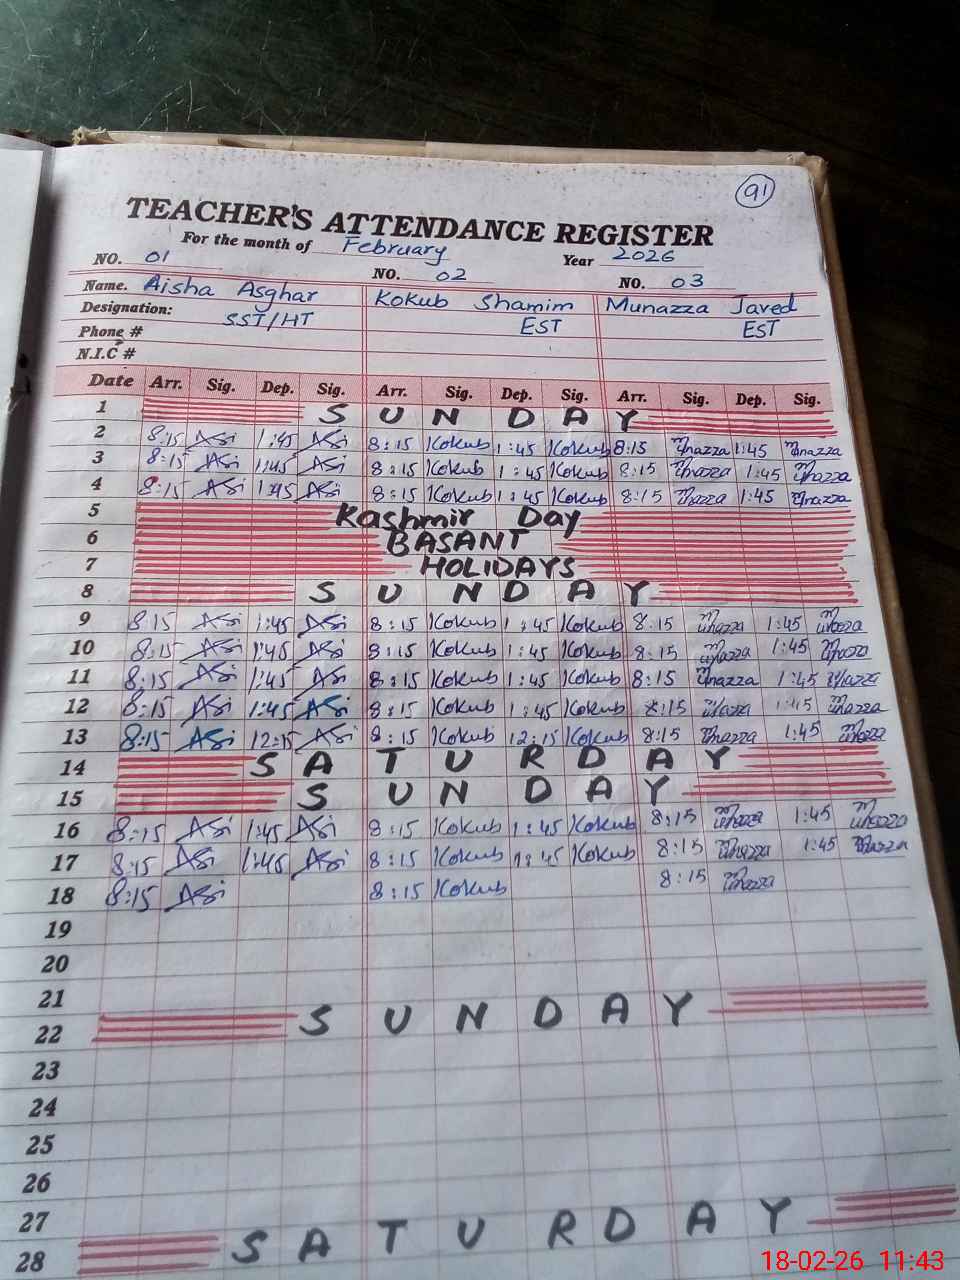 91
TEACHER'S ATTENDANCE REGISTER
For the month of February Year 2026
NO. 01 NO. 02 NO. 03
Name. Aisha Asghar Kokub Shamim Munazza Javed
Designation: SST/HT EST EST
Phone #
N.I.C #
Date Arr. Sig. Dep. Sig. Arr. Sig. Dep. Sig. Arr. Sig. Dep. Sig.
1 SUNDAY
2 8:15 1:45 8:15 Kokub 1:45 Kokub 8:15 1:45
3 8:15 1:45 8:15 Kokub 1:45 Kokub 8:15 1:45
4 8:15 1:45 8:15 Kokub 1:45 Kokub 8:15 1:45
5 Kashmir Day
6 BASANT
7 HOLIDAYS
8 SUNDAY
9 8:15 1:45 8:15 Kokub 1:45 Kokub 8:15 1:45
10 8:15 1:45 8:15 Kokub 1:45 Kokub 8:15 1:45
11 8:15 1:45 8:15 Kokub 1:45 Kokub 8:15 1:45
12 8:15 1:45 8:15 Kokub 1:45 Kokub 8:15 1:45
13 8:15 12:15 8:15 Kokub 12:15 Kokub 8:15 1:45
14 SATURDAY
15 SUNDAY
16 8:15 1:45 8:15 Kokub 1:45 Kokub 8:15 1:45
17 8:15 1:45 8:15 Kokub 1:45 Kokub 8:15 1:45
18 8:15 8:15 Kokub 8:15
19
20
21
22 SUNDAY
23
24
25
26
27
28 SATURDAY
18-02-26 11:43